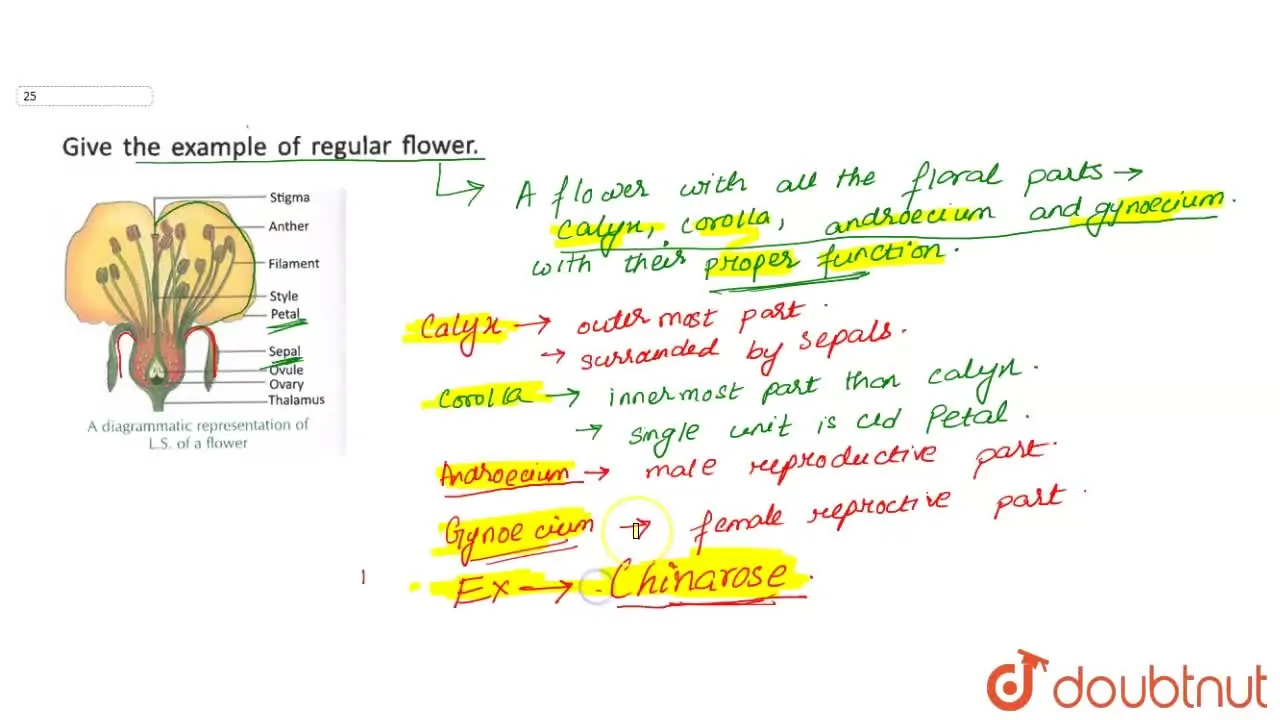 25
Give the example of regular flower.
A flower with all the floral parts →
calyx, corolla, androecium and gynoecium.
with their proper function.
Stigma
Anther
Filament
Style
Petal
Sepal
Ovule
Ovary
Thalamus
A diagrammatic representation of
L.S. of a flower
Calyx → outermost part.
→ surranded by sepals.
corolla → innermost part than calyx.
→ single unit is cld Petal.
Androecium → male reproductive part.
Gynoecium → female reproctive part.
Ex → Chinarose.
doubtnut